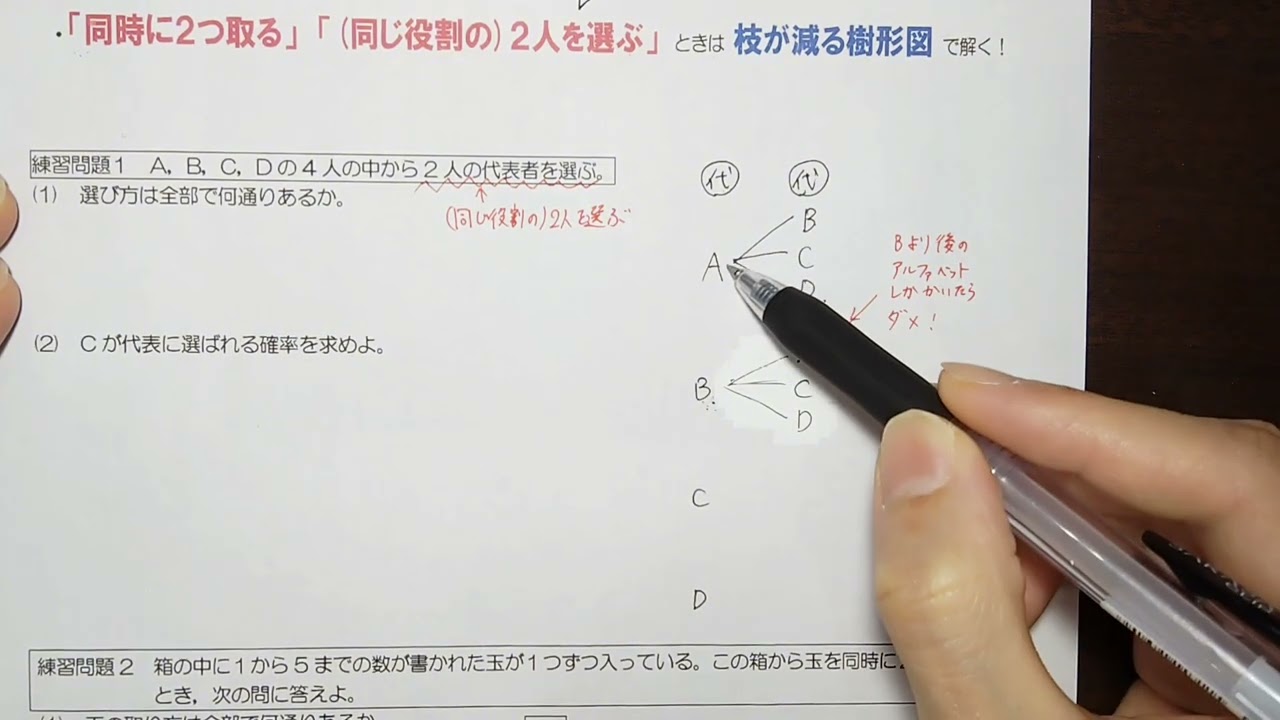 ・「同時に2つ取る」「(同じ役割の)2人を選ぶ」ときは 枝が減る樹形図 で解く!
練習問題1 A, B, C, Dの4人の中から2人の代表者を選ぶ。
(1) 選び方は全部で何通りあるか。
(同じ役割の)2人を選ぶ
(2) Cが代表に選ばれる確率を求めよ。
代 代
B
A C
D
Bより後の
アルファベット
しかかいたら
ダメ!
B C
D
C
D
練習問題2 箱の中に1から5までの数が書かれた玉が1つずつ入っている。この箱から玉を同時に
とき,次の問に答えよ。